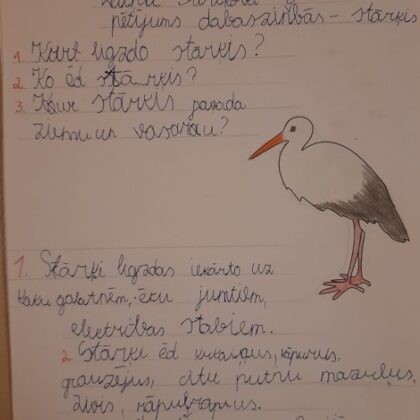 pētījums dabaszinībās - stārķis
1. Kur ligzdo stārķis?
2. Ko ēd stārķis?
3. Kur stārķis pavada
ziemu un vasaru?
1. Stārķi ligzdas iekārto uz
koku galotnēm, ēku jumtiem,
elektrības stabiem.
2. Stārķi ēd kukaiņus, kāpurus,
grauzējus, citu putnu mazuļus,
zivis, rāpuļus.